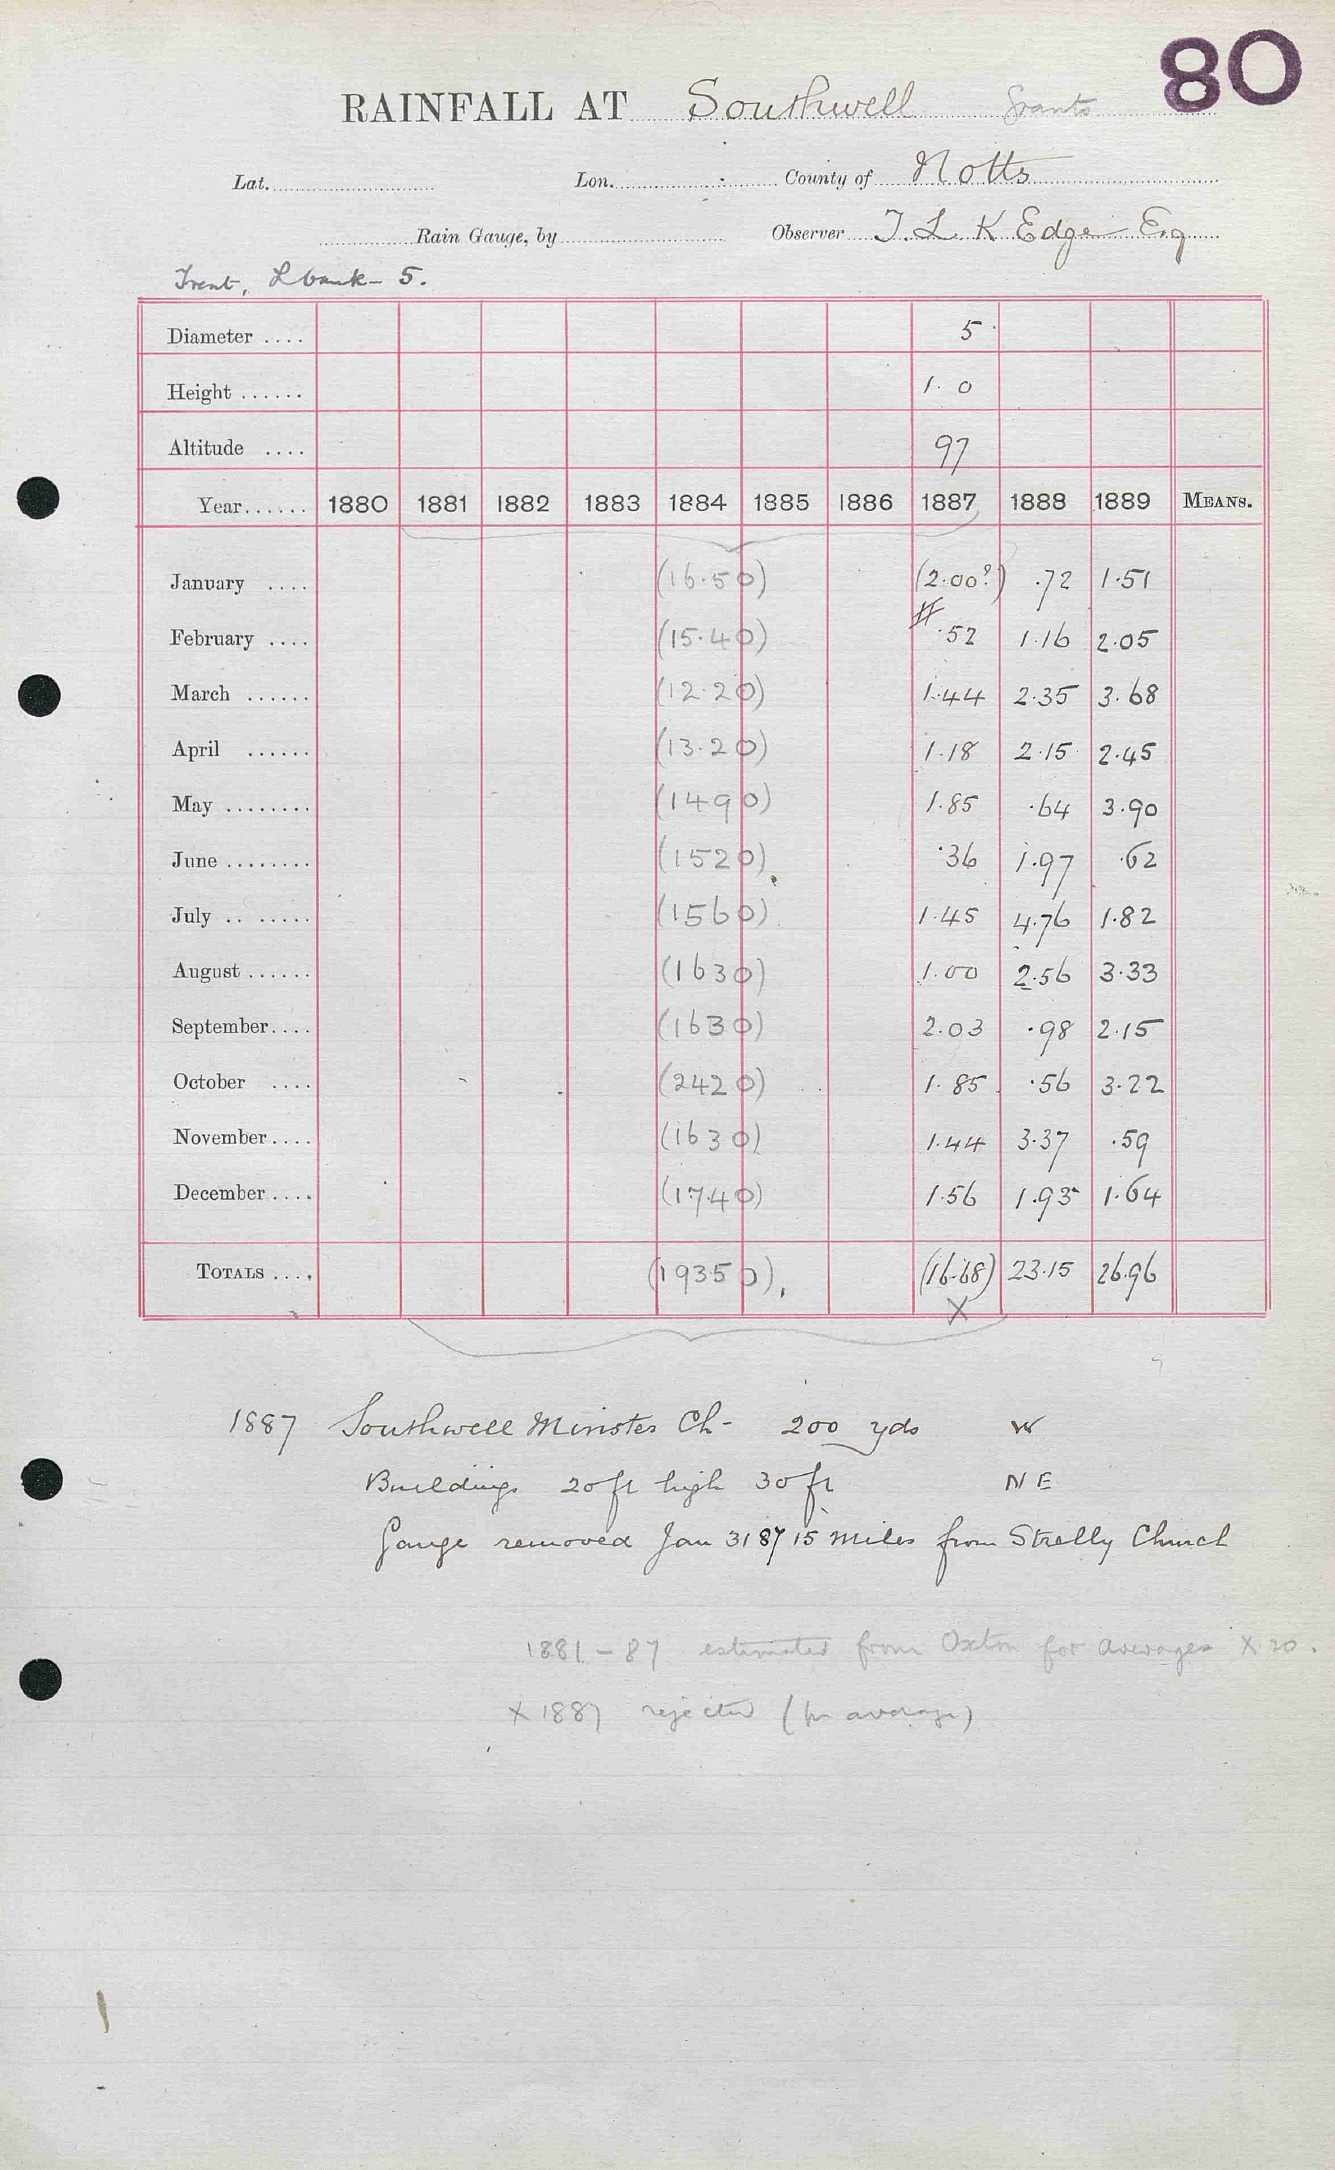 80
RAINFALL AT Southwell Grants
Lat. Lon. County of Notts
Rain Gauge, by Observer T. L. K Edge Esq
Trent, L bank - 5.
Diameter .... 5
Height ...... 1. 0
Altitude .... 97
Year...... 1880 1881 1882 1883 1884 1885 1886 1887 1888 1889 MEANS.
January .... (16.50) (2.00?) .72 1.51
February .... (15.40) # .52 1.16 2.05
March ...... (12.20) 1.44 2.35 3.68
April ...... (13.20) 1.18 2.15 2.45
May ........ (1490) 1.85 .64 3.90
June ........ (1520) .36 1.97 .62
July .. ..... (1560) 1.45 4.76 1.82
August ...... (1630) 1.00 2.56 3.33
September.... (1630) 2.03 .98 2.15
October .... (2420) 1.85 .56 3.22
November .... (1630) 1.44 3.37 .59
December .... (17.40) 1.56 1.93 1.64
TOTALS .... (19350) (16.68) 23.15 26.96
X
1887 Southwell Minster Ch - 200 yds W
Buildings 20 ft high 30 ft NE
Gauge removed Jan 31 87 15 miles from Strelly Church
1881 - 87 estimated from Oxton for averages X 20.
X 1887 rejected (for average)